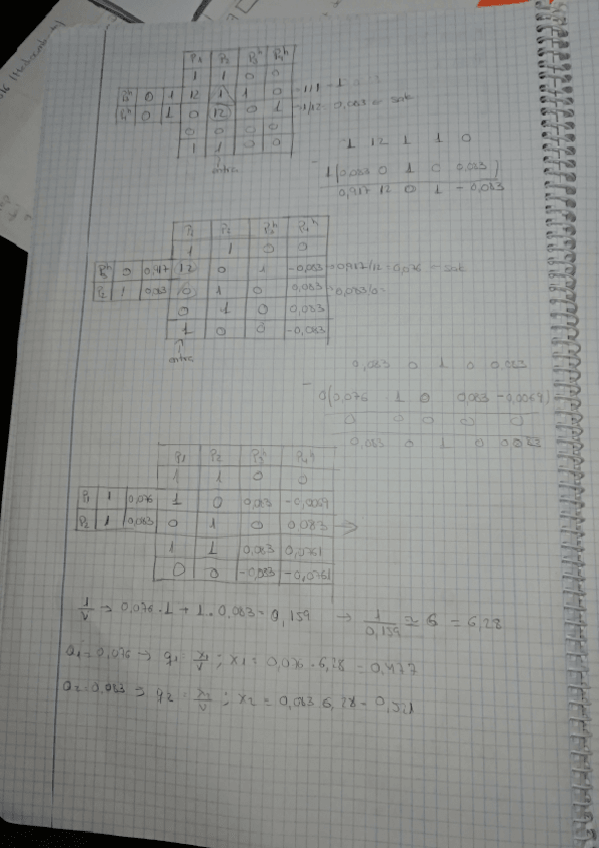 P1 P2 P3h P4h
1 1 0 0
P3h 0 1 12 1 1 0 1/1 = 1
P4h 0 1 0 12 0 1 1/12 = 0,083 → sale
0 0 0 0
1 1 0 0
entra
1 12 1 1 0
- 1(0,083 0 1 0 0,083)
0,917 12 0 1 -0,083
P1 P2 P3h P4h
1 1 0 0
P3h 0 0,917 12 0 1 -0,083 0,917/12 = 0,076 → sale
P2 1 0,083 0 1 0 0,083 0,083/0 =
0 1 0 0,083
1 0 0 -0,083
entra
0,083 0 1 0 0,083
- 0(0,076 1 0 0,083 -0,0069)
0 0 0 0 0
0,083 0 1 0 0,083
P1 P2 P3h P4h
1 1 0 0
P1 1 0,076 1 0 0,083 -0,0069
P2 1 0,083 0 1 0 0,083 →
1 1 0,083 0,0761
0 0 -0,083 -0,0761
1/V → 0,076 · 1 + 1 · 0,083 = 0,159 → 1/0,159 ≅ 6 = 6,28
a1 = 0,076 → q1 = x1/V ; x1 = 0,076 · 6,28 = 0,477
a2 = 0,083 → q2 = x2/V ; x2 = 0,083 · 6,28 = 0,521